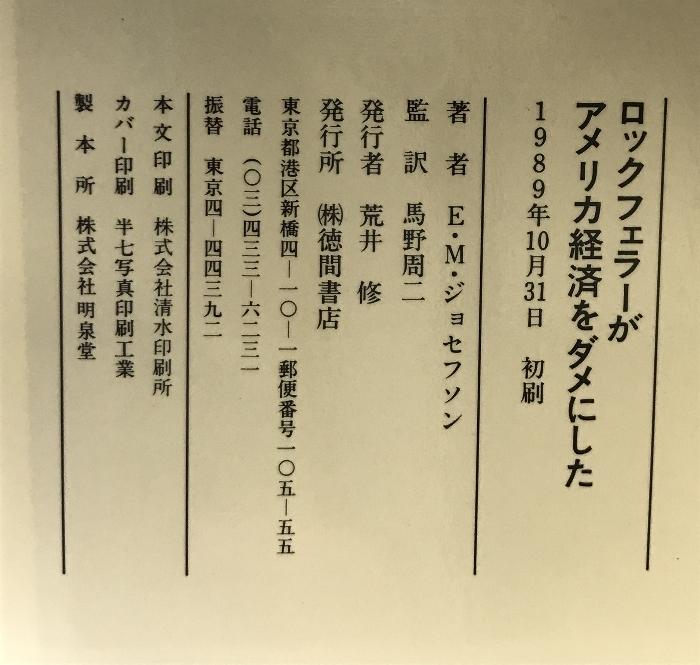 ロックフェラーが
アメリカ経済をダメにした
1989年10月31日 初刷
著者 E・M・ジョセフソン
監訳 馬野周二
発行者 荒井 修
発行所 ㈱徳間書店
東京都港区新橋四―一〇―一郵便番号一〇五―五五
電話 (〇三)四三三―六二三一
振替 東京四―四四三九二
本文印刷 株式会社清水印刷所
カバー印刷 半七写真印刷工業
製本所 株式会社明泉堂